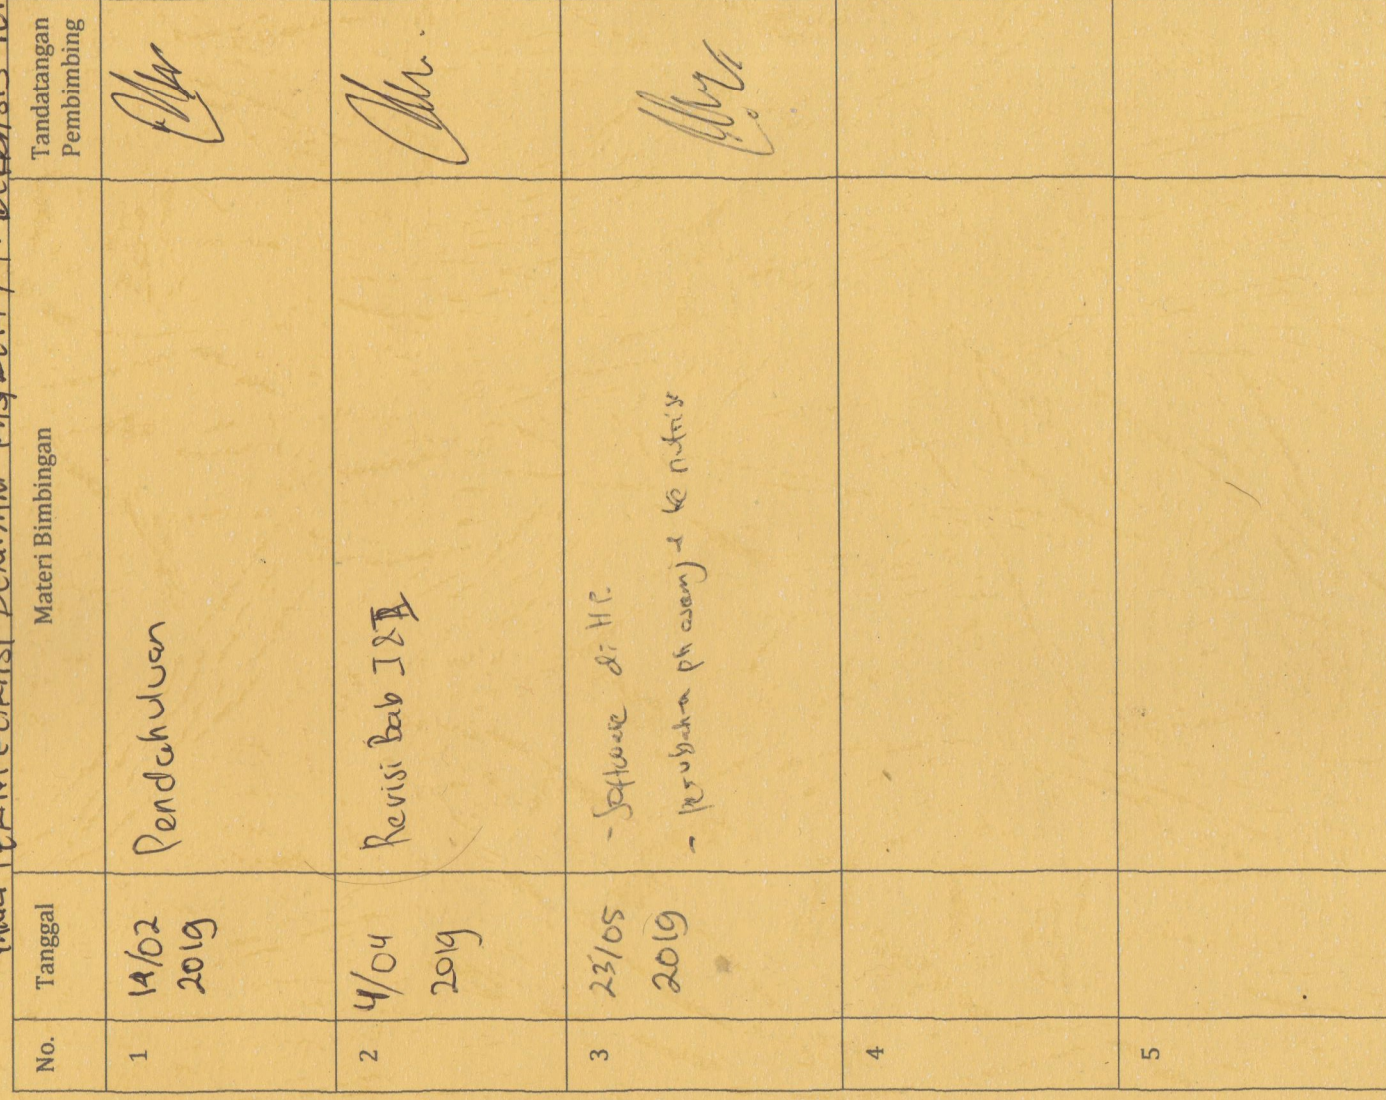 No. Tanggal Materi Bimbingan Tandatangan
Pembimbing
1 14/02 Pendahuluan
2019
2 4/04 Revisi Bab I & II
2019
3 23/05 - Software di HP.
2019 - perubahan ph asam ke nutrisi
4
5